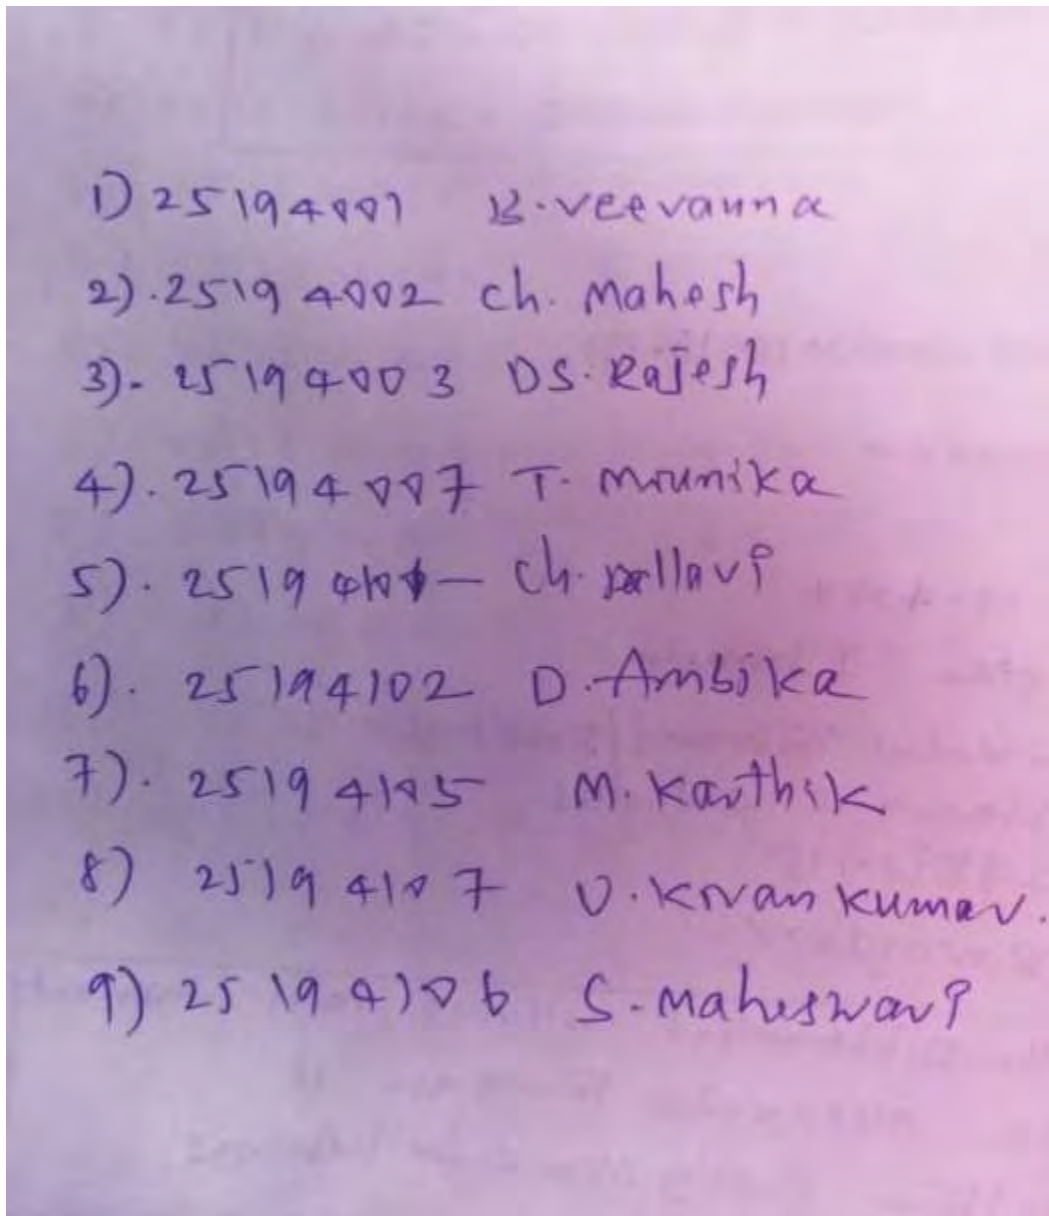 1) 25194001 B. veeranna
2). 25194002 ch. Mahesh
3)- 25194003 DS. Rajesh
4). 25194007 T. Mounika
5). 2519 — ch. pallavi
6). 25194102 D. Ambika
7). 25194105 M. Karthik
8) 25194107 V. Kiran Kumar.
9) 25194106 S. Maheswari